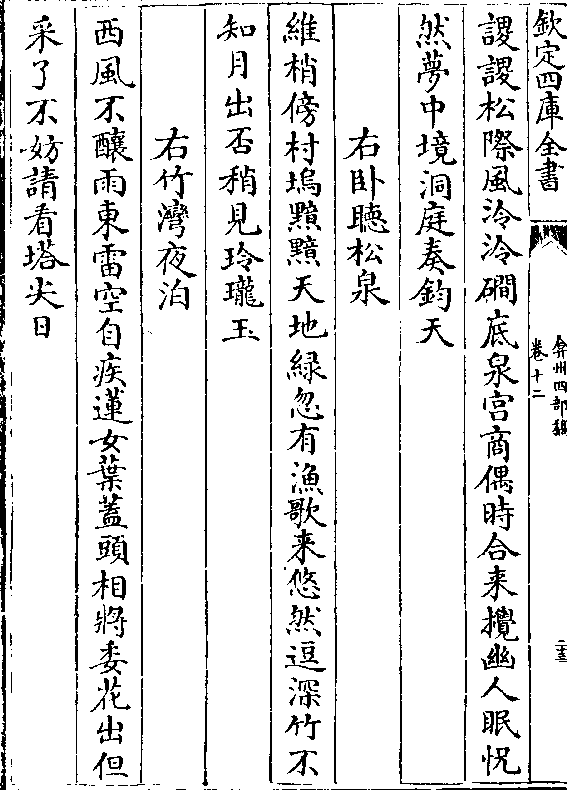 欽定四庫全書
弇州四部稿
卷十二
二十三
謖謖松際風泠泠磵底泉宫商偶時合来攪幽人眠怳
然夢中境洞庭奏鈞天
右卧聽松泉
維梢傍村塢黯黯天地緑忽有漁歌来悠然逗深竹不
知月出否稍見玲瓏玉
右竹灣夜泊
西風不釀雨東雷空自疾蓮女葉蓋頭相將委花出但
采了不妨請看塔尖日